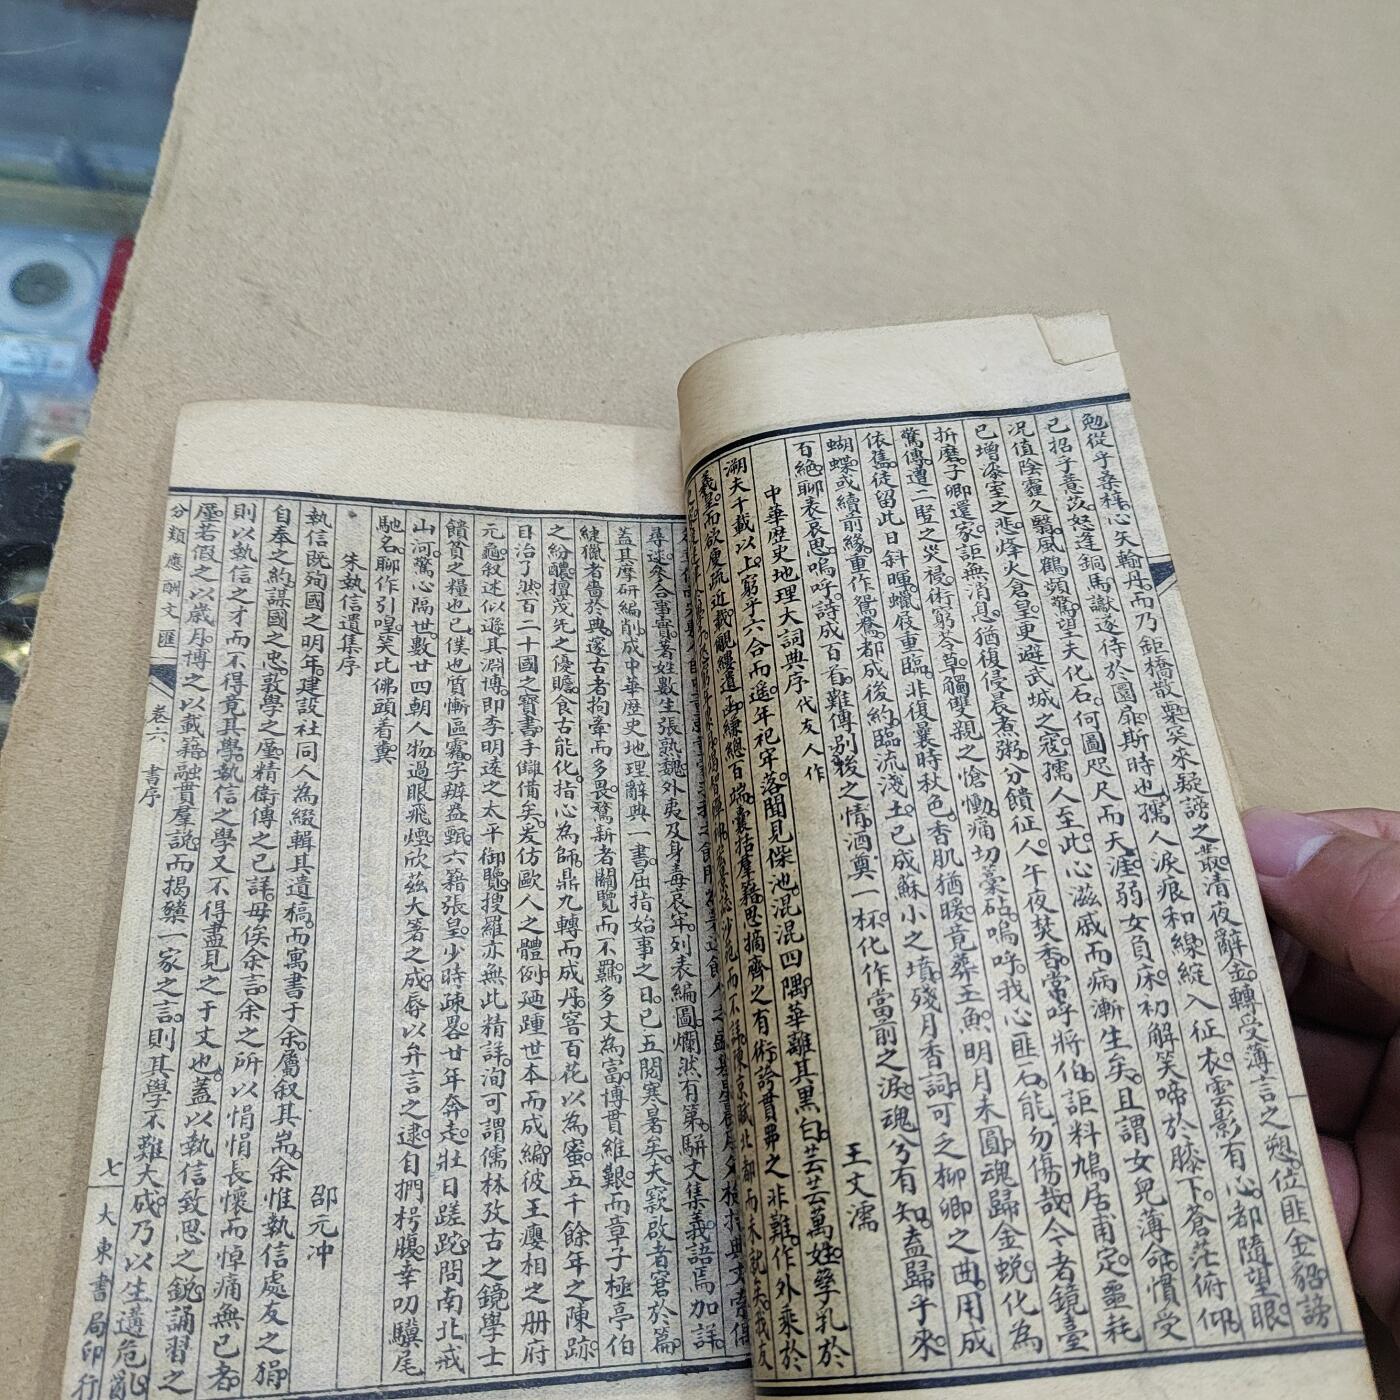 勉從乎桑種心矢翰丹而乃鉅橋散粟突來疑謗之叢清夜辭金轉受薄言之愬位匪金貂謗
已招乎薏苡怒逢銅馬讞遂待於圜扉斯時也孺人淚痕和線綻入征衣雲影有心都隨望眼
況值陰霾久翳風鶴頻驚望夫化石何圖咫尺而天涯弱女負床初解笑啼於膝下蒼茫俯仰
已增漆室之悲烽火倉皇更避武城之寇孺人至此心滋戚而病漸生矣且謂女兒薄命慣受
折磨子卿還家詎無消息猶復侵晨煮粥分饋征人午夜焚香常呼將伯詎料鳩居甫定噩耗
驚傳遭二豎之災祲術窮苓草觸壐親之愴慟痛切槀砧嗚呼我心匪石能勿傷哉今者鏡臺
依舊徒留此日斜暉蠟屐重臨非復曩時秋色香肌猶暖竟葬玉魚明月未圓魂歸金蛻化為
蝴蝶或續前緣重作鴛鴦都成後約臨流淺土已成蘇小之墳殘月香詞可乏柳卿之曲用成
百絕聊表哀思嗚呼詩成百有難傳別後之情酒奠一杯化作當前之淚魂兮有知盍歸乎來
中華歷史地理大詞典序 代友人作 王文濡
溯夫十載以上窮乎六合而遙年祀牢落聞見傑池混混四隅華離其黑白芸芸萬姓孳乳於
羲皇而欲
尋迷參合事實著姓數生張熟魏外夷及身毒哀牢列表編圖爛然有第駢文集義語焉加詳
蓋其摩研編削成中華歷史地理辭典一書屈指始事之日已五閱寒暑矣夫窾啟者窘於篇
緁獵者嗇於典邃古者拘牽而多畏騖新者關覽而不羈多文為富博貫維艱而章子極亭伯
之紛釀擅茂先之優贍食古能化指心為師鼎九轉而成丹窖百花以為蜜五千餘年之陳跡
日治了然百二十國之寶書手讎備矣爰仿歐人之體例迺踵世本而成編彼王璎相之册府
元龜叙述似遜其淵博即李明遠之太平御覽搜羅亦無此精詳洵可謂儒林攷古之鏡學士
饋貧之糧也已僕也質慚區霧字辨益甄六籍張皇少時疎畧廿年奔走壯日蹉跎問南北戒
山河驚心隔世數廿四朝人物過眼飛煙欣茲大著之成辱以弁言之逮自捫枵腹幸叨驥尾
馳名聊作引嚆笑比佛頭着糞
朱執信遺集序 邵元冲
執信既殉國之明年建設社同人為綴輯其遺稿而寓書于余屬叙其耑余惟執信處友之狷
自奉之約謀國之忠敦學之厪精衛傳之已詳毋俟余言余之所以悁悁長懷而悼痛無已者
則以執信之才而不得竟其學執信之學又不得盡見之于文也蓋以執信致思之銳誦習之
厪若假之以歲月博之以載籍融貫羣說而揭櫫一家之言則其學不難大成乃以生遘危亂
分類應酬文匯 卷六 書序 七 大東書局印行